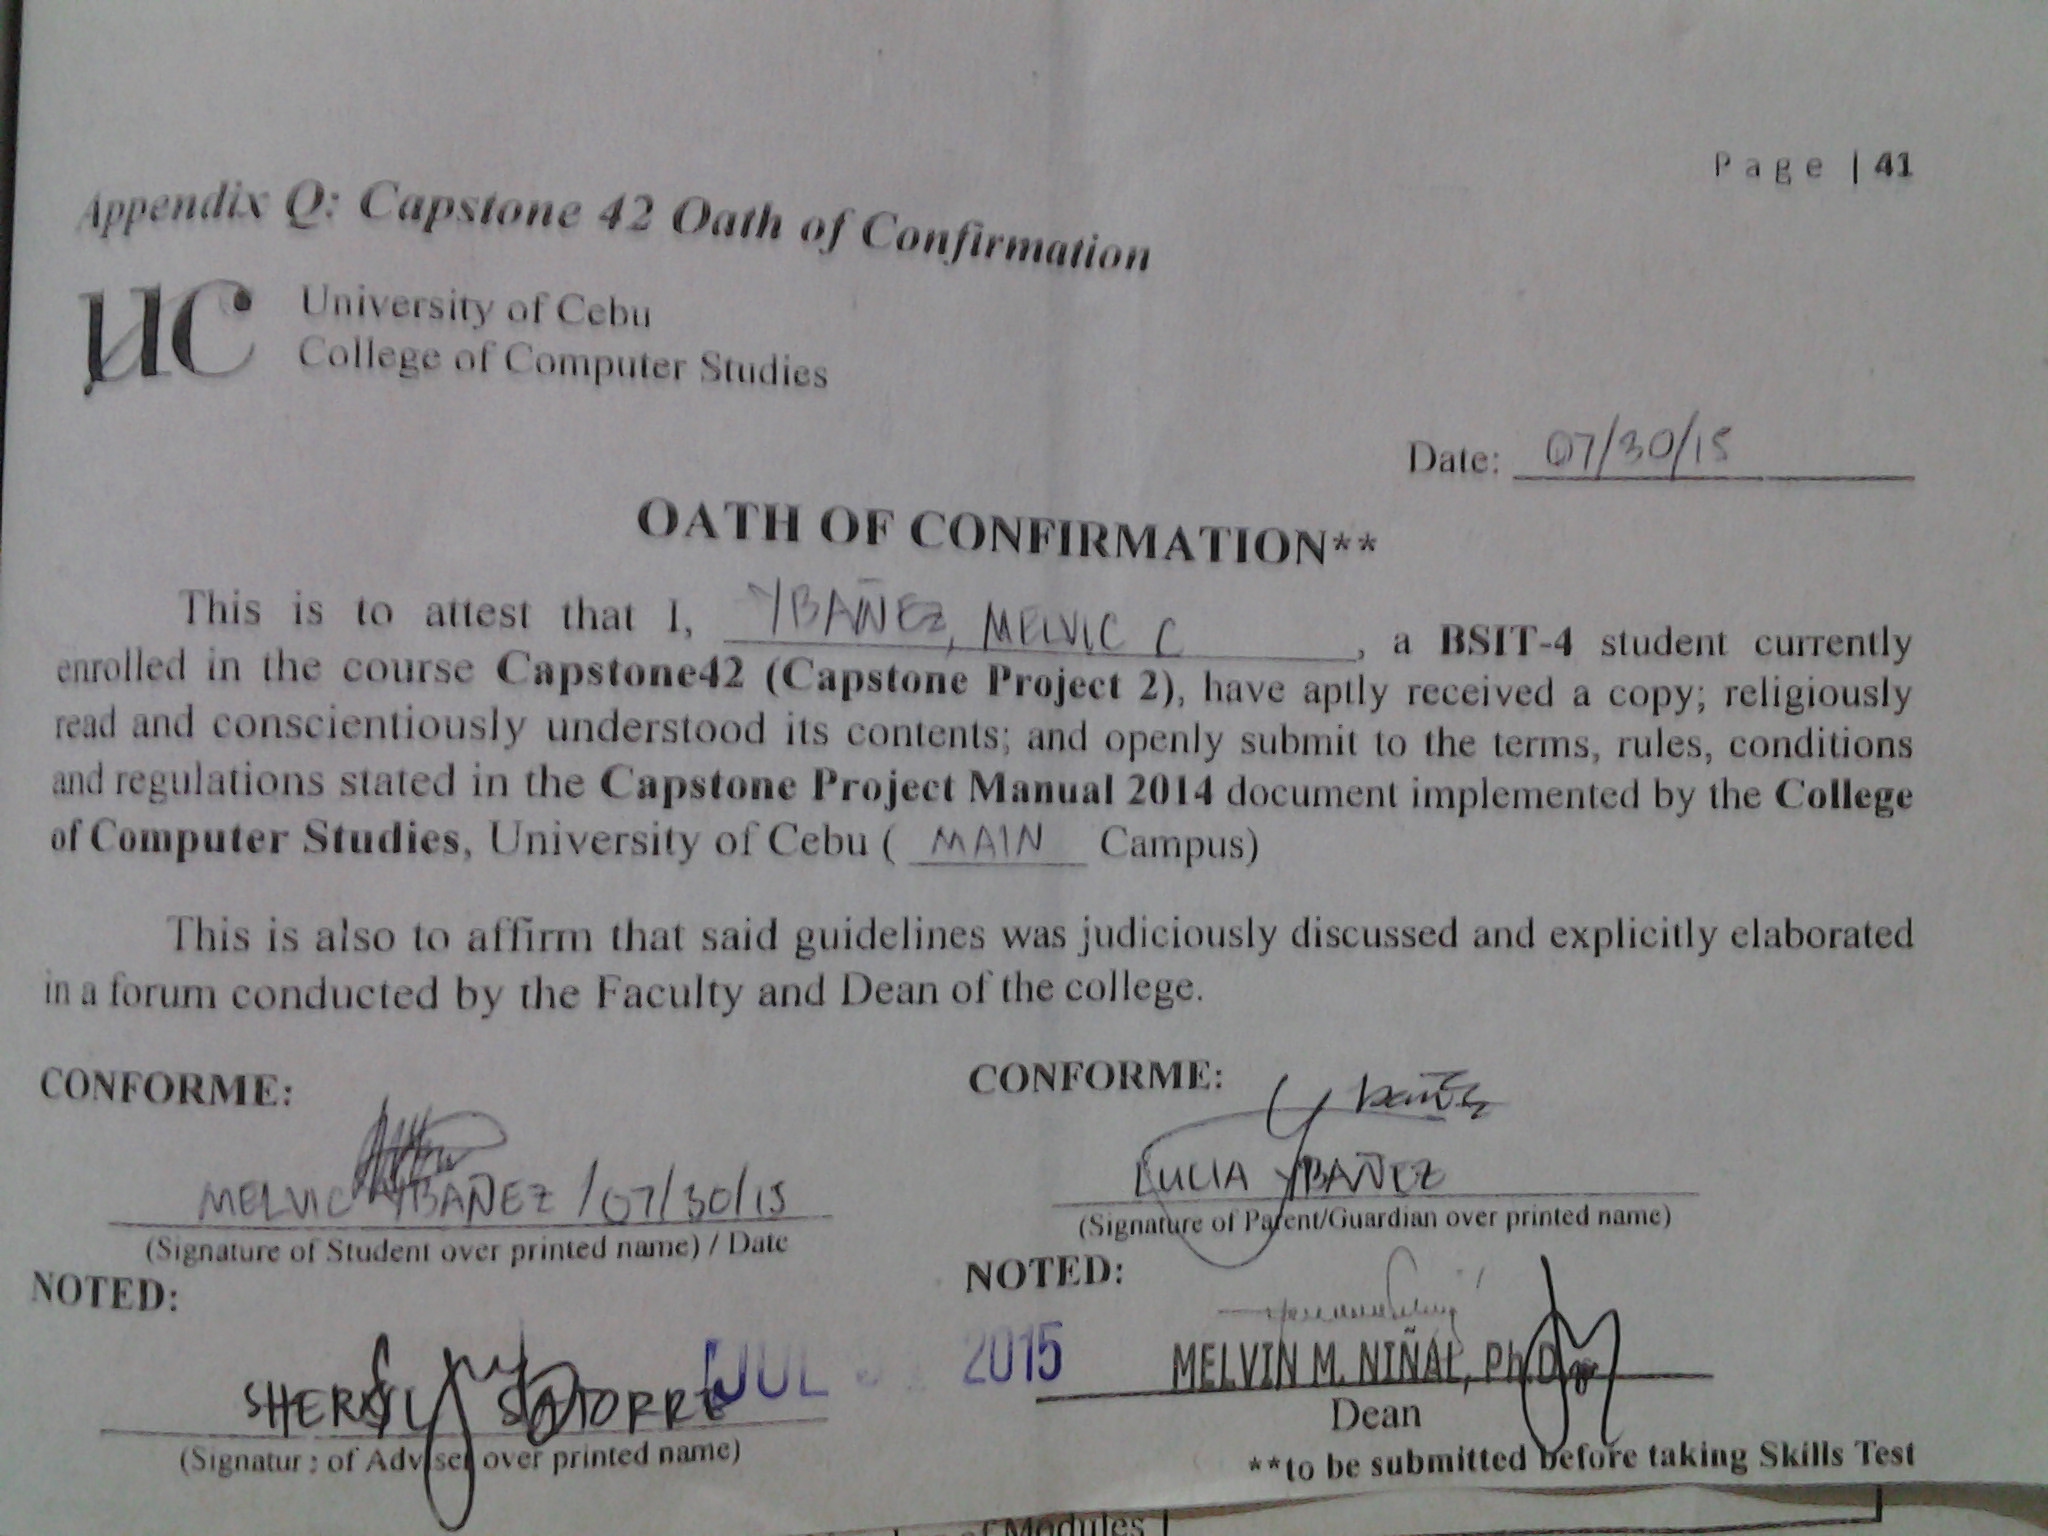 Page | 41
Appendix Q: Capstone 42 Oath of Confirmation
UC
University of Cebu
College of Computer Studies
Date: 07/30/15
OATH OF CONFIRMATION**
This is to attest that I, YBAÑEZ, MELVIC C, a BSIT-4 student currently
enrolled in the course Capstone42 (Capstone Project 2), have aptly received a copy; religiously
read and conscientiously understood its contents; and openly submit to the terms, rules, conditions
and regulations stated in the Capstone Project Manual 2014 document implemented by the College
of Computer Studies, University of Cebu ( MAIN Campus)
This is also to affirm that said guidelines was judiciously discussed and explicitly elaborated
in a forum conducted by the Faculty and Dean of the college.
CONFORME:
CONFORME:
MELVIC YBAÑEZ /07/30/15
LUCIA YBAÑEZ
(Signature of Student over printed name) / Date
(Signature of Parent/Guardian over printed name)
NOTED:
NOTED:
SHERYL SATORRE
JUL 2015
MELVIN M. NIÑAL, Ph.D.
(Signature of Adviser over printed name)
Dean
**to be submitted before taking Skills Test
of Modules